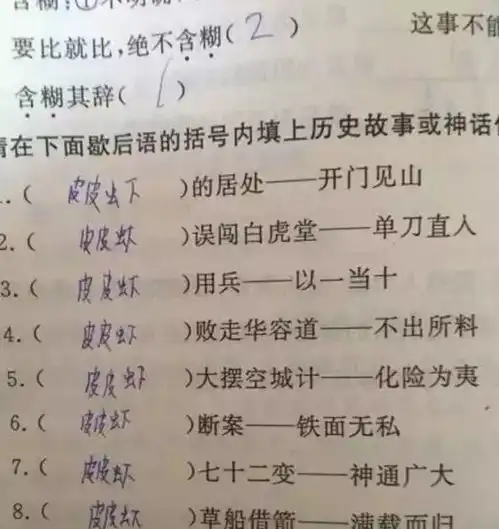 含糊:①不明确
要比就比,绝不含糊(2) 这事不能
含糊其辞(1)
请在下面歇后语的括号内填上历史故事或神话
1.(皮皮虫下)的居处——开门见山
2.(皮皮虾)误闯白虎堂——单刀直人
3.(皮皮虾)用兵——以一当十
4.(皮皮虾)败走华容道——不出所料
5.(皮皮虾)大摆空城计——化险为夷
6.(皮皮虾)断案——铁面无私
7.(皮皮虾)七十二变——神通广大
8.(皮皮虾)草船借箭——满载而归